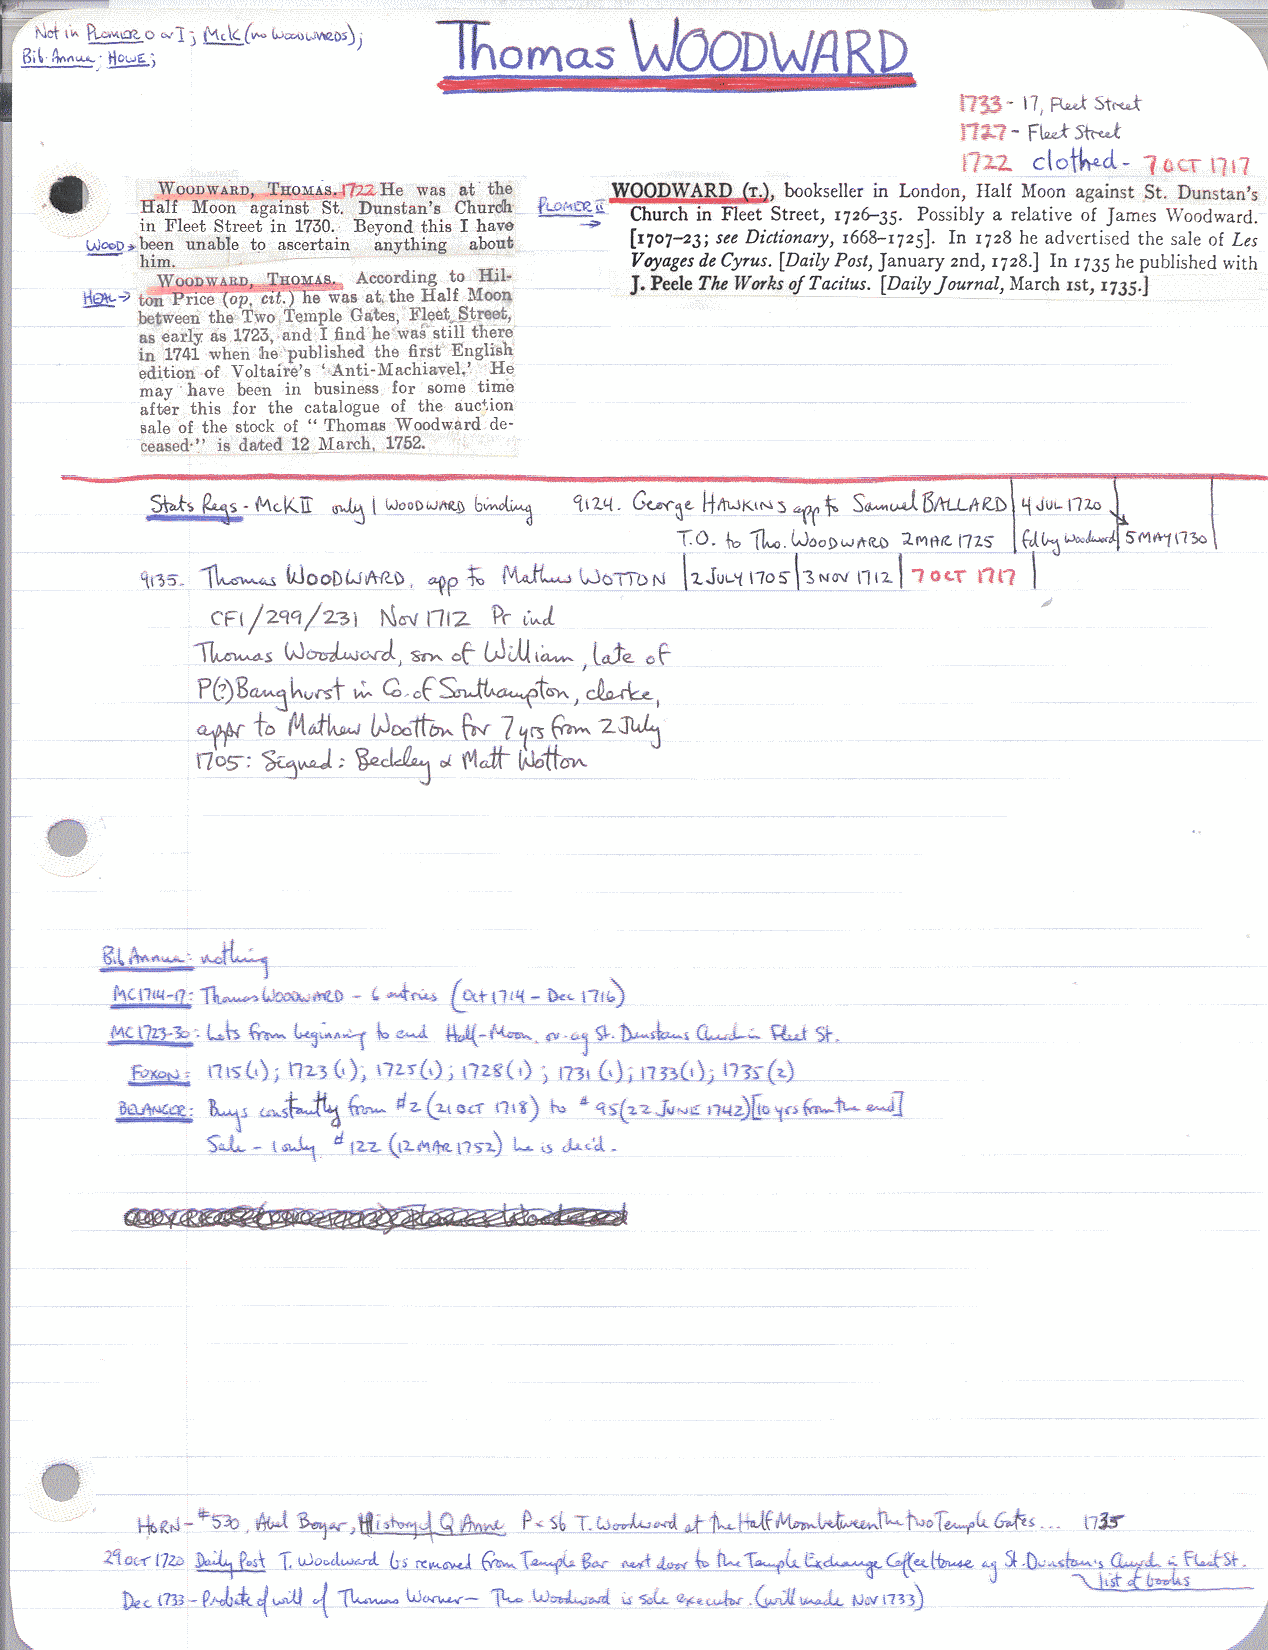 Not in PLOMER O or I; McK (no WOODWARDS);
Bib. Annua; HOWE;
Thomas WOODWARD
1733 - 17, Fleet Street
1727 - Fleet Street
1722 clothed - 7 OCT 1717
WOODWARD, THOMAS. 1722 He was at the
Half Moon against St. Dunstan's Church
in Fleet Street in 1730. Beyond this I have
WOOD → been unable to ascertain anything about
him.
WOODWARD, THOMAS. According to Hil-
HEAL → ton Price (op. cit.) he was at the Half Moon
between the Two Temple Gates, Fleet Street,
as early as 1723, and I find he was still there
in 1741 when he published the first English
edition of Voltaire's 'Anti-Machiavel.' He
may have been in business for some time
after this for the catalogue of the auction
sale of the stock of "Thomas Woodward de-
ceased" is dated 12 March, 1752.
PLOMER II →
WOODWARD (T.), bookseller in London, Half Moon against St. Dunstan's
Church in Fleet Street, 1726–35. Possibly a relative of James Woodward.
[1707–23; see Dictionary, 1668–1725]. In 1728 he advertised the sale of Les
Voyages de Cyrus. [Daily Post, January 2nd, 1728.] In 1735 he published with
J. Peele The Works of Tacitus. [Daily Journal, March 1st, 1735.]
Stats Regs - McK II only 1 WOODWARD binding 9124. George HAWKINS app to Samuel BALLARD | 4 JUL 1720
T.O. to Tho. WOODWARD 2 MAR 1725 | fd by Woodward | 5 MAY 1730
9135. Thomas WOODWARD, app to Mathew WOTTON | 2 JULY 1705 | 3 NOV 1712 | 7 OCT 1717
CF1/299/231 Nov 1712 Pr ind
Thomas Woodward, son of William, late of
P(?)Banghurst in Co. of Southampton, clerke,
appr to Mathew Wootton for 7 yrs from 2 July
1705: Signed: Beckley & Matt Wotton
Bib Annua: nothing
MC1714-17: Thomas WOODWARD - 6 entries (Oct 1714 - Dec 1716)
MC1723-30: Lots from beginning to end Half-Moon, ov-ag St. Dunstans Church in Fleet St.
FOXON: 1715(1); 1723(1); 1725(1); 1728(1); 1731(1); 1733(1); 1735(2)
BELANGER: Buys constantly from #2 (21 OCT 1718) to #95 (22 JUNE 1742) [10 yrs from the end]
Sale - 1 only #122 (12 MAR 1752) he is dec'd.
HORN - #530, Abel Boyer, History of Q Anne P<Sb T. Woodward at the Half Moon between the two Temple Gates... 1735
29 OCT 1720 Daily Post T. Woodward is removed from Temple Bar next door to the Temple Exchange Coffee House ag St. Dunstan's Church in Fleet St.
list of books
Dec 1733 - Probate of will of Thomas Warner - Tho. Woodward is sole executor. (will made Nov 1733)